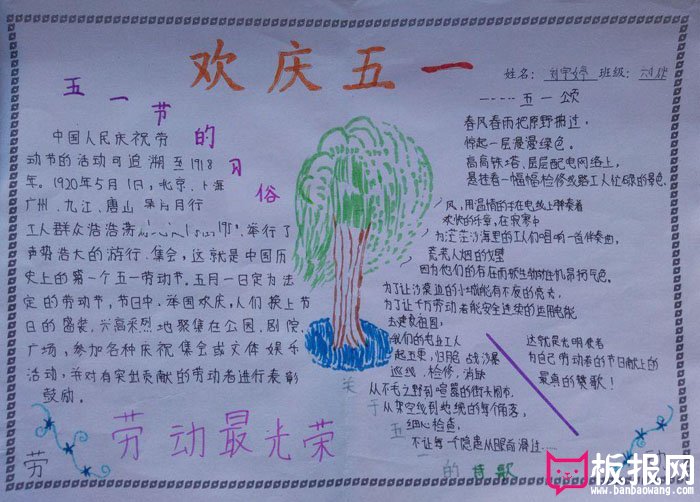 欢庆五一
姓名: 班级:
五一节的习俗
中国人民庆祝劳
动节的活动可追溯至1918
年。1920年5月1日,北京、上海
广州、九江、唐山
工人群众浩浩荡荡 举行了
声势浩大的游行、集会,这就是中国历
史上的第一个五一劳动节。五月一日定为法
定的劳动节,节日中,举国欢庆,人们换上节
日的盛装,兴高采烈地聚集在公园、剧院、
广场,参加各种庆祝集会或文体娱乐
活动,并对有突出贡献的劳动者进行表彰
鼓励。
劳动最光荣
劳
五一颂
春风春雨把原野拂过,
惊起一层漫漫绿色。
高高铁塔、层层配电网络上,
是挂着一幅幅检修线路工人忙碌的景色。
风,用温情的手在电线上弹奏着
欢快的乐章,在寂寞中
为茫茫沙海里的工们唱响一首伴奏曲,
荒荒人烟的戈壁
因为他们的存在而被生物勃机昂扬气色。
为了让沙漠里的小城能有不夜的亮光,
为了让千万劳动者能安全连续的运用电能
去建设祖国,
我们的电业工人
起五更,归脸战沙漠
巡线、检修、消缺
从不毛之野到喧嚣的街头闹市,
从架空线到地缆的每个角落,
细心检查,
不让每一个隐患从眼前滑过……
这就是光明使者
为自己劳动者的节日献上的
最真的赞歌!
关于五一的诗歌
板报网
www.banbaowang.com